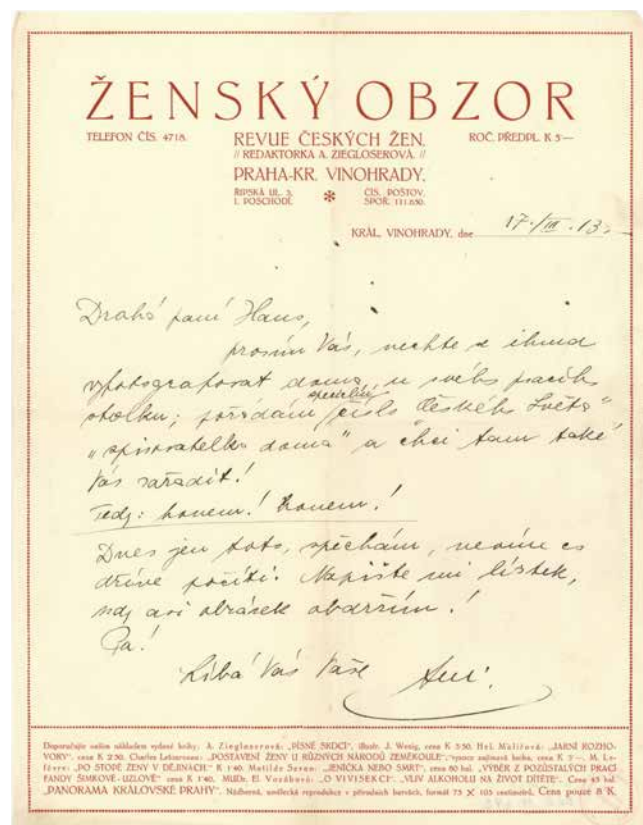 ŽENSKÝ OBZOR
TELEFON ČÍS. 4718.
REVUE ČESKÝCH ŽEN.
ROČ. PŘEDPL. K 5—
// REDAKTORKA A. ZIEGLOSEROVÁ. //
PRAHA-KR. VINOHRADY,
ŘIPSKÁ UL. 3,
I. POSCHODÍ.
ČÍS. POŠTOV.
SPOŘ. 111.650.
KRÁL. VINOHRADY, dne 17./III. 13.
Drahá paní Hano,
prosím Vás, nechte se ihned
vyfotografovat doma, u svého psacího
speciální
stolku; pořádám číslo Českého Světa"
"spisovatelka doma" a chci tam také
Vás zařadit!
Tedy: honem! honem!
Dnes jen toto, spěchám, nevím co
dříve počíti. Napište mi lístek,
kdy asi obrázek obdržím!
Pa!
Líbá Vás Vaše
Doporučujte naším nákladem vydané knihy: A. Ziegloserová: „PÍSNĚ SRDCÍ", illustr. J. Wenig, cena K 3·50. Hel. Malířová: „JARNÍ ROZHO-
VORY", cena K 2·50. Charles Letourneau: „POSTAVENÍ ŽENY U RŮZNÝCH NÁRODŮ ZEMĚKOULE", vysoce zajímavá kniha, cena K 2·—. M. Le-
fèvre: „PO STOPĚ ŽENY V DĚJINÁCH." K 1·40. Matilde Serao: „JENIČKA NEBO SMRT", cena 80 hal. „VÝBĚR Z POZŮSTALÝCH PRACÍ
FANDY ŠIMKOVÉ-UZLOVÉ" cena K 1·40. MUDr. El. Vozábová: „O VIVISEKCI". „VLIV ALKOHOLU NA ŽIVOT DÍTĚTE". Cena 45 hal.
„PANORAMA KRÁLOVSKÉ PRAHY". Nádherná, umělecká reprodukce v přírodních barvách, formát 75 × 105 centimetrů. Cena pouze 8 K.